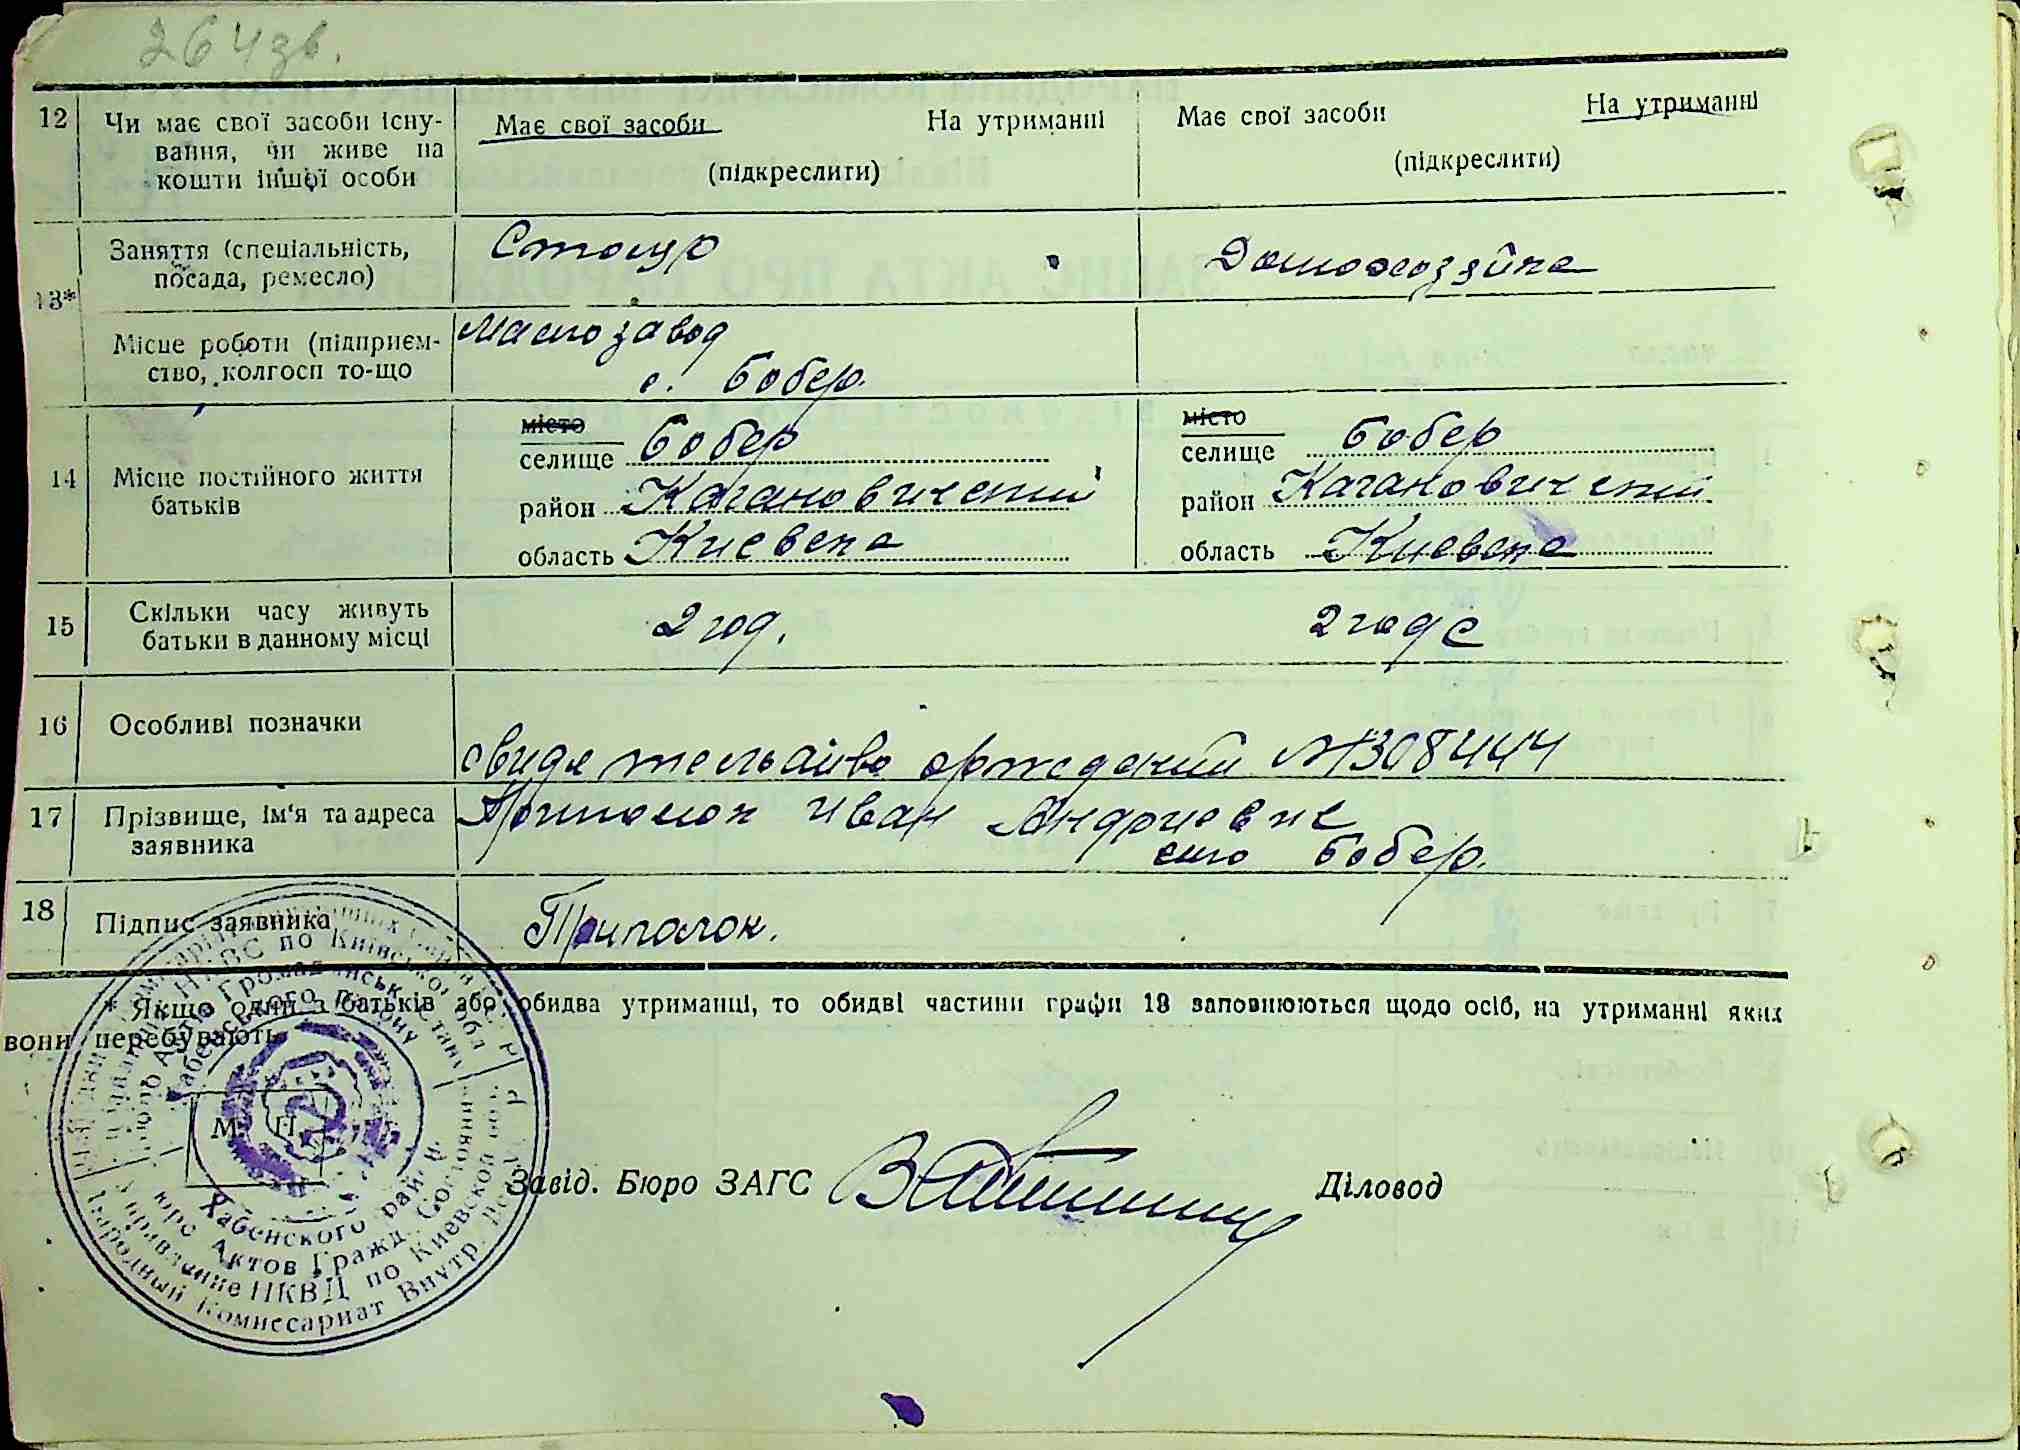 264зв.
12 Чи має свої засоби існу-
вання, чи живе на
кошти іншої особи
Має свої засоби На утриманні
(підкреслити)
Має свої засоби На утриманні
(підкреслити)
13*
Заняття (спеціальність,
посада, ремесло)
Домохозяйка
Місце роботи (підприєм-
ство, колгосп то-що
Маслозавод
с. Бобер.
14 Місце постійного життя
батьків
місто
селище Бобер
район Кагановичский
область Киевска
місто
селище Бобер
район Кагановичский
область Киевска
15 Скільки часу живуть
батьки в данному місці
2 год. 2 года
16 Особливі позначки
№308444
17 Прізвище, ім'я та адреса
заявника
Приполок Иван Андриевич
село Бобер.
18 Підпис заявника
Приполок.
* Якщо один з батьків або обидва утриманці, то обидві частини графи 13 заповнюються щодо осіб, на утриманні яких
вони перебувають.
М. П.
Завід. Бюро ЗАГС Діловод
НКВС по Київській обл
Хабенського району
Хабенского района
Бюро Актов Гражд. Состояния
Управление НКВД по Киевской
Народный Комиссариат Внутр.